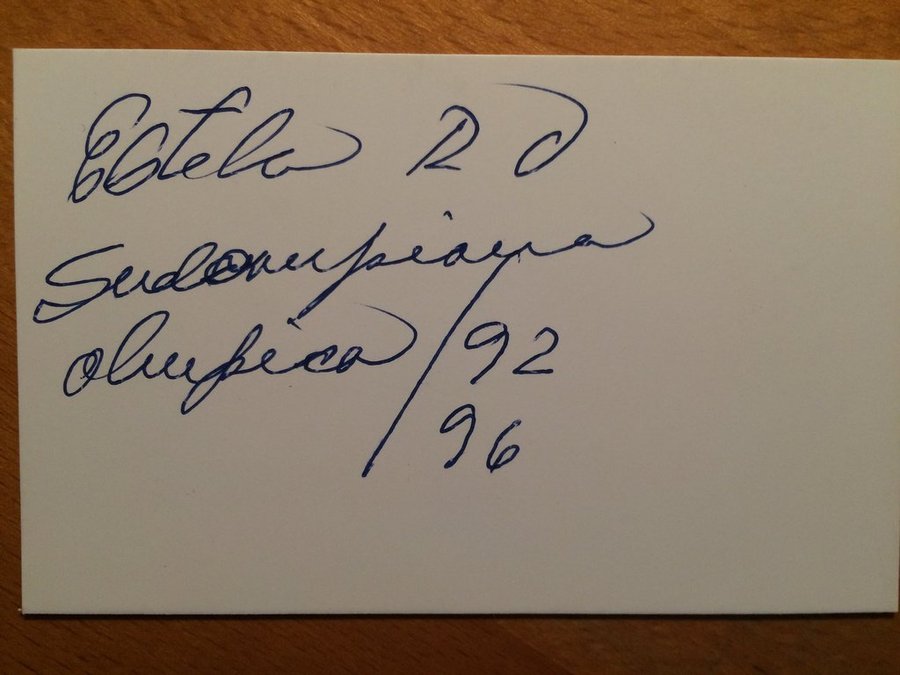 Estela R D
Subcampeona
olimpica / 92
96